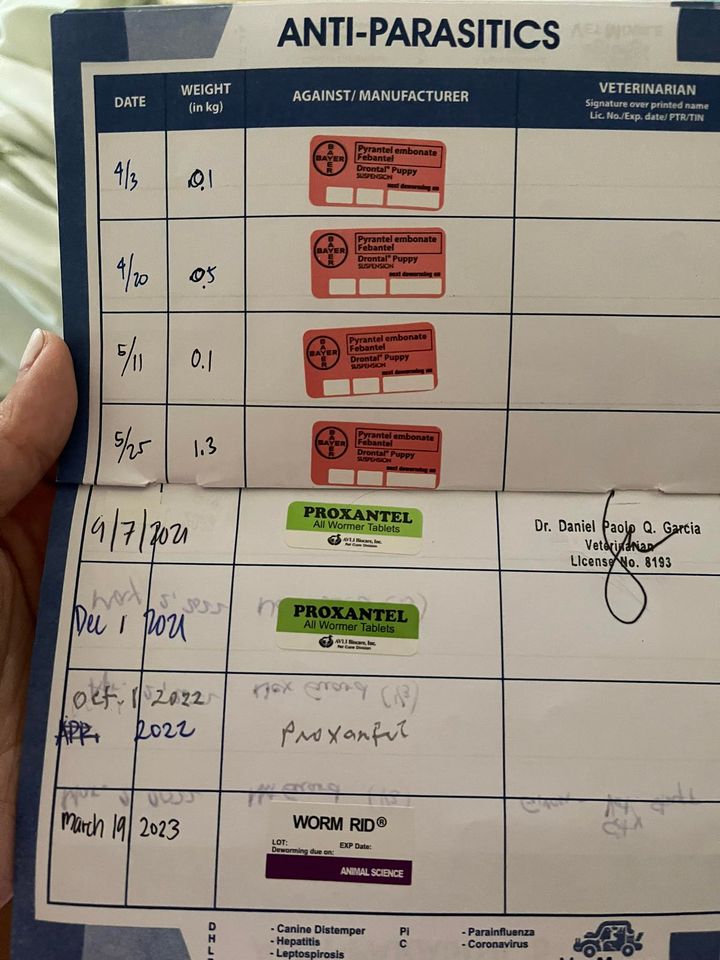 ANTI-PARASITICS
DATE WEIGHT (in kg) AGAINST/ MANUFACTURER VETERINARIAN
Signature over printed name
Lic. No./Exp. date/ PTR/TIN
4/3 0.1
BAYER
Pyrantel embonate
Febantel
Drontal® Puppy
SUSPENSION
next deworming on
4/20 0.5
BAYER
Pyrantel embonate
Febantel
Drontal® Puppy
SUSPENSION
next deworming on
5/11 0.1
BAYER
Pyrantel embonate
Febantel
Drontal® Puppy
SUSPENSION
next deworming on
5/25 1.3
BAYER
Pyrantel embonate
Febantel
Drontal® Puppy
SUSPENSION
next deworming on
9/7/2021
PROXANTEL
All Wormer Tablets
AVLI Biocare, Inc.
Pet Care Division
Dr. Daniel Paolo Q. Garcia
Veterinarian
License No. 8193
Dec 1 2021
PROXANTEL
All Wormer Tablets
AVLI Biocare, Inc.
Pet Care Division
Oct. 1 2022
APR. 2022 Proxantel
March 19 2023
WORM RID®
LOT: EXP Date:
Deworming due on:
ANIMAL SCIENCE
D - Canine Distemper Pi - Parainfluenza
H - Hepatitis C - Coronavirus
L - Leptospirosis